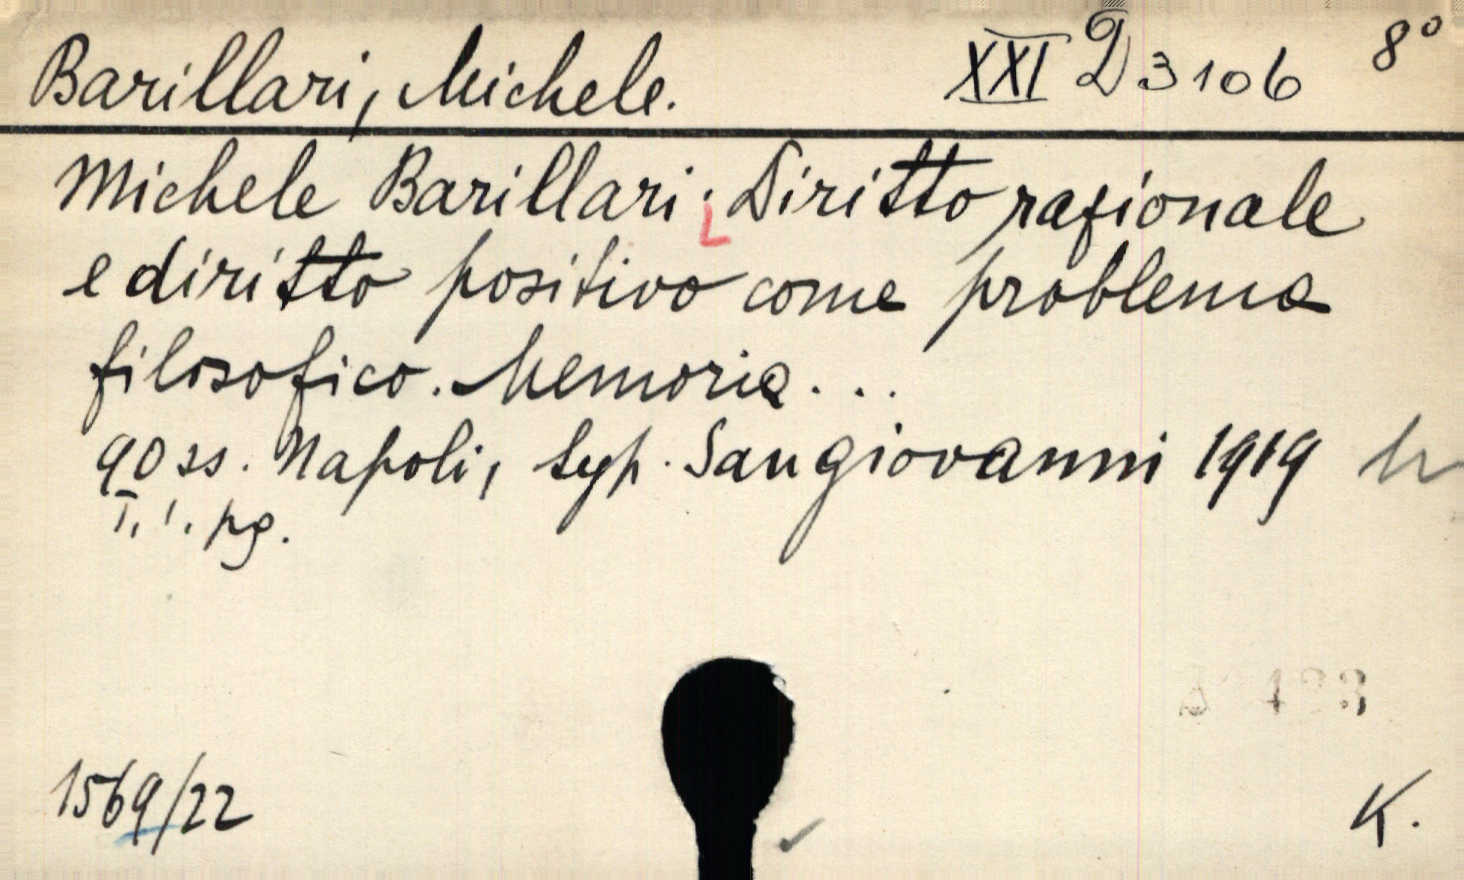 Barillari, Michele. XXI D 3106 8°
Michele Barillari: Diritto razionale
e diritto positivo come problema
filosofico. Memoria...
90 ss. Napoli, typ. Sangiovanni 1919
I, 1. pg.
1569/22 K.